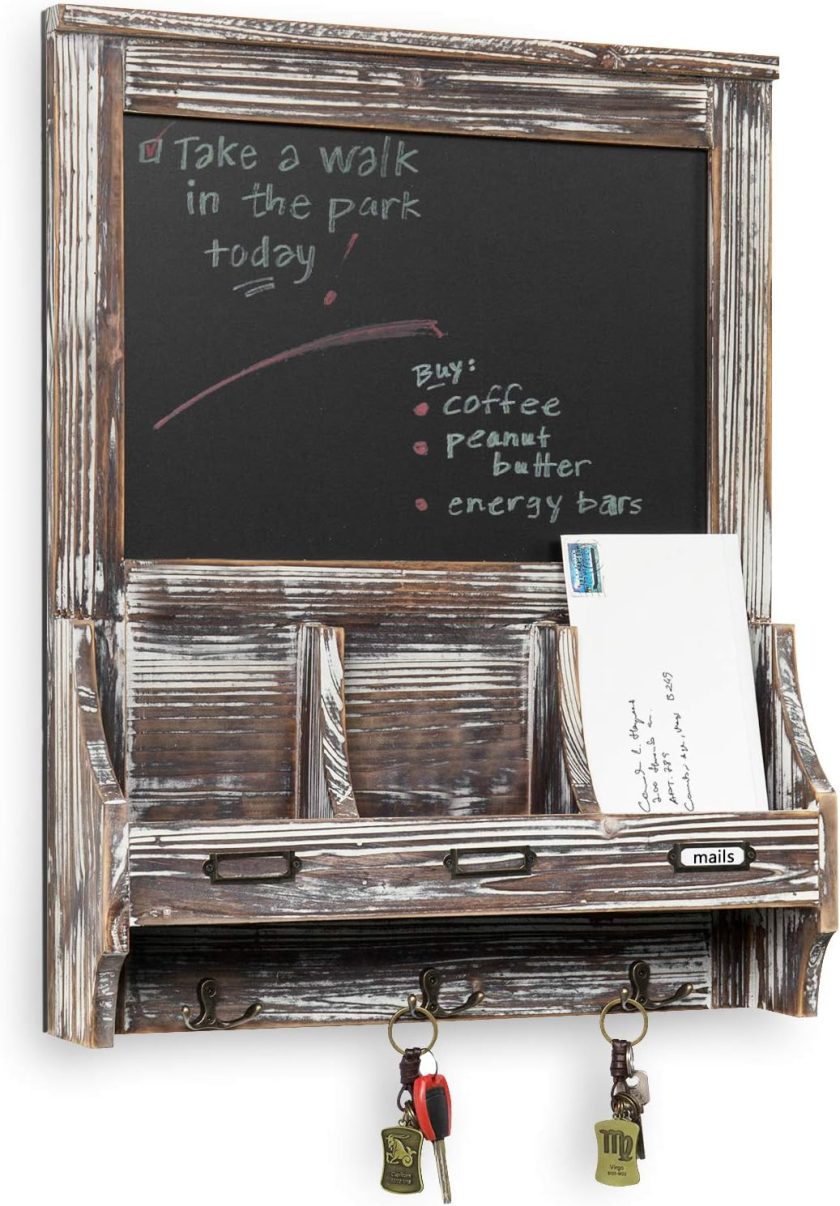 Take a walk
in the park
today!
Buy:
coffee
peanut
butter
energy bars
APT. 289
mails
Capricorn
Virgo